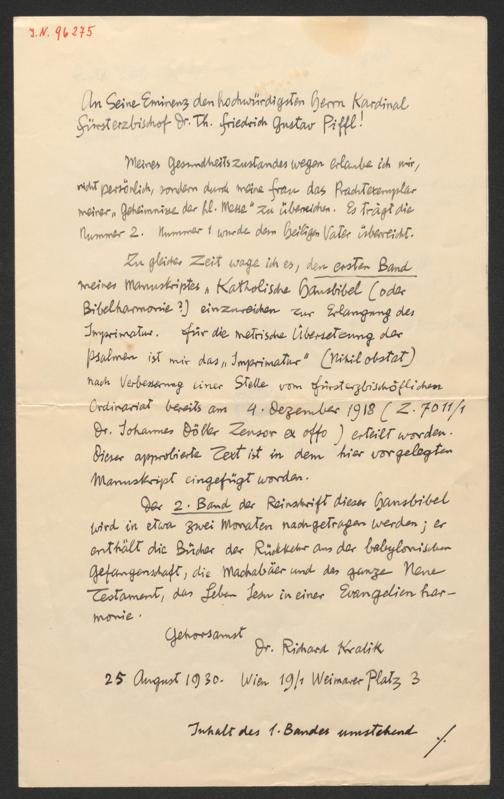 J.N. 96275
An Seine Eminenz den hochwürdigsten Herrn Kardinal
Fürsterzbischof Dr. Th. Friedrich Gustav Piffl!
Meines Gesundheitszustandes wegen erlaube ich mir,
nicht persönlich, sondern durch meine Frau das Prachtexemplar
meiner „Geheimnisse der hl. Messe" zu überreichen. Es trägt die
Nummer 2. Nummer 1 wurde dem Heiligen Vater überreicht.
Zu gleicher Zeit wage ich es, den ersten Band
meines Manuskriptes „Katholische Hausbibel (oder
Bibelharmonie?) einzureichen zur Erlangung des
Imprimatur. Für die metrische Übersetzung der
Psalmen ist mir das „Imprimatur" (Nihil obstat)
nach Verbesserung einer Stelle vom fürsterzbischöflichen
Ordinariat bereits am 4. Dezember 1918 (Z. 7011/1
Dr. Johannes Döller Zensor ex offo) erteilt worden.
Dieser approbierte Text ist in dem hier vorgelegten
Manuskript eingefügt worden.
Der 2. Band der Reinschrift dieser Hausbibel
wird in etwa zwei Monaten nachgetragen werden; er
enthält die Bücher der Rückkehr aus der babylonischen
Gefangenschaft, die Machabäer und das ganze Neue
Testament, das Leben Jesu in einer Evangelien har-
monie.
Gehorsamst
Dr. Richard Kralik
25 August 1930. Wien 19/1 Weimarer Platz 3
Inhalt des 1. Bandes umstehend ./.